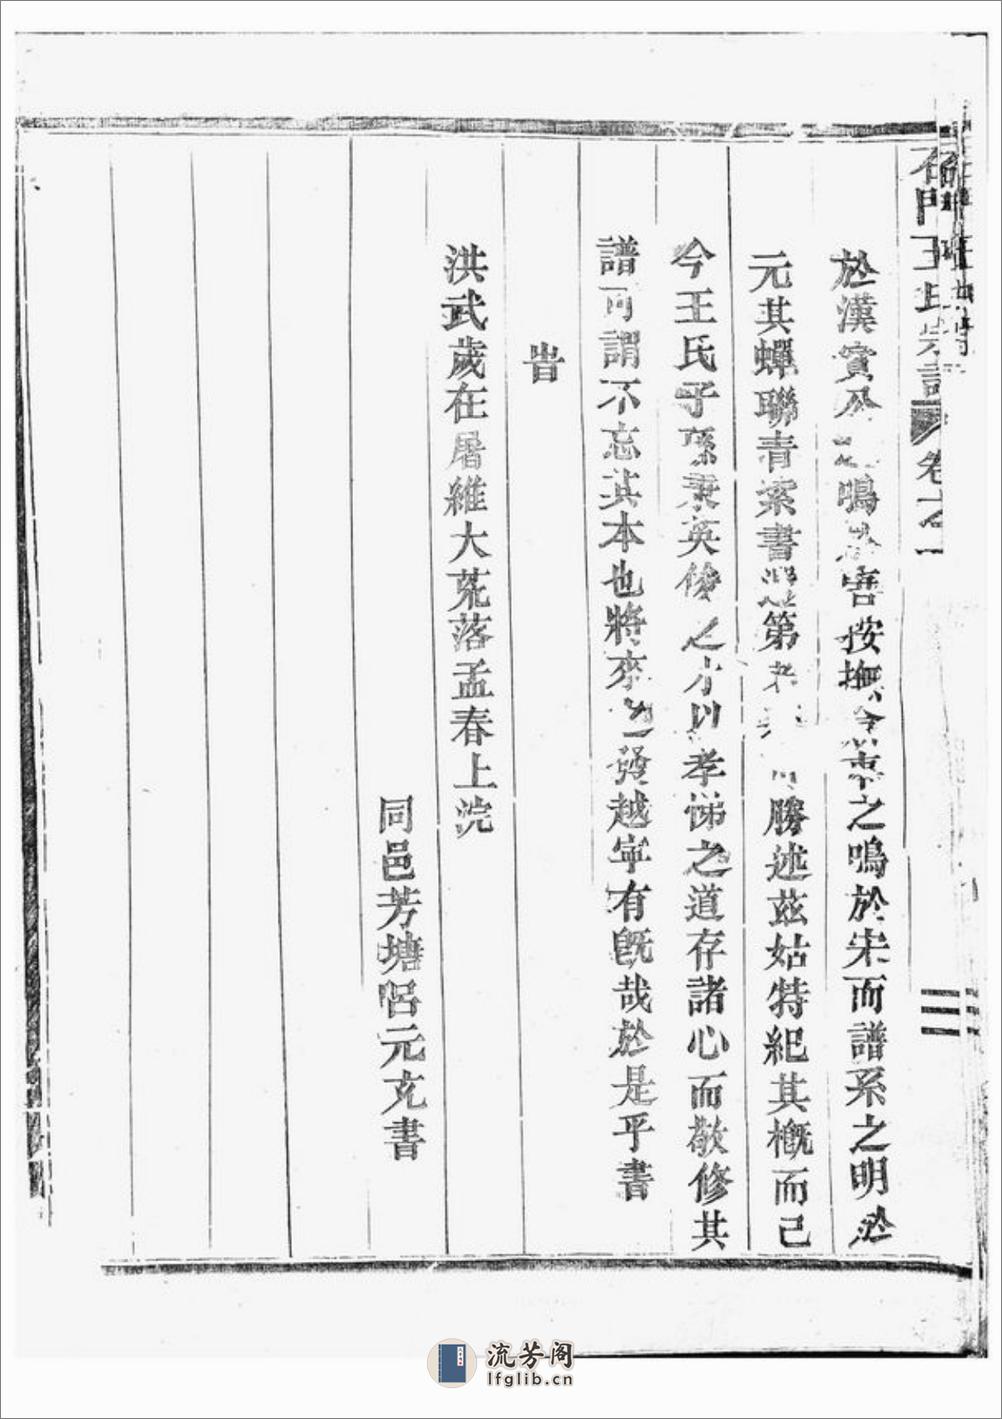 石門王氏宗譜 卷之一
於漢賓 鳴 害按撫 之鳴於宋而譜系之明於
元其蟬聯青索書 第 勝述茲姑特紀其概而已
今王氏子孫秉英俊之才以孝悌之道存諸心而敬修其
譜可謂不忘其本也將來之發越寧有旣哉於是乎書
旹
洪武歲在屠維大荒落孟春上浣
同邑芳塘呂元克書
三
流芳阁
lfglib.cn